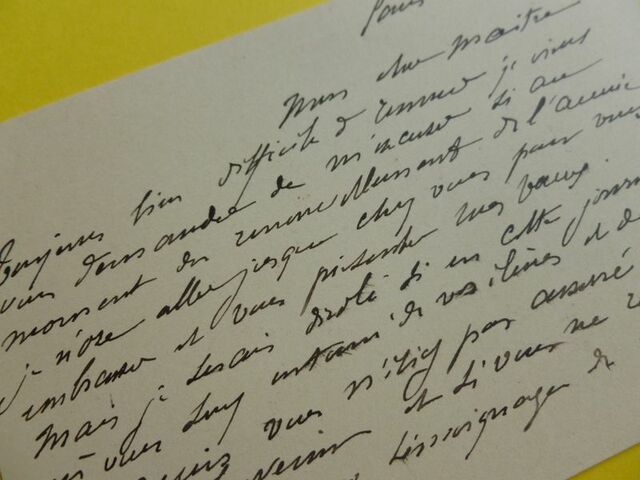 Mon cher Maître
Toujours bien difficile à remuer je viens
vous demander de m'excuser si au
moment du renouvellement de l'année
je n'ose aller jusque chez vous pour vous
embrasser et vous présenter mes vœux.
Mais je serais désolé si en cette journée
vous entouré de vos élèves et de
vous n'étiez pas assuré
et si vous ne
témoignages de